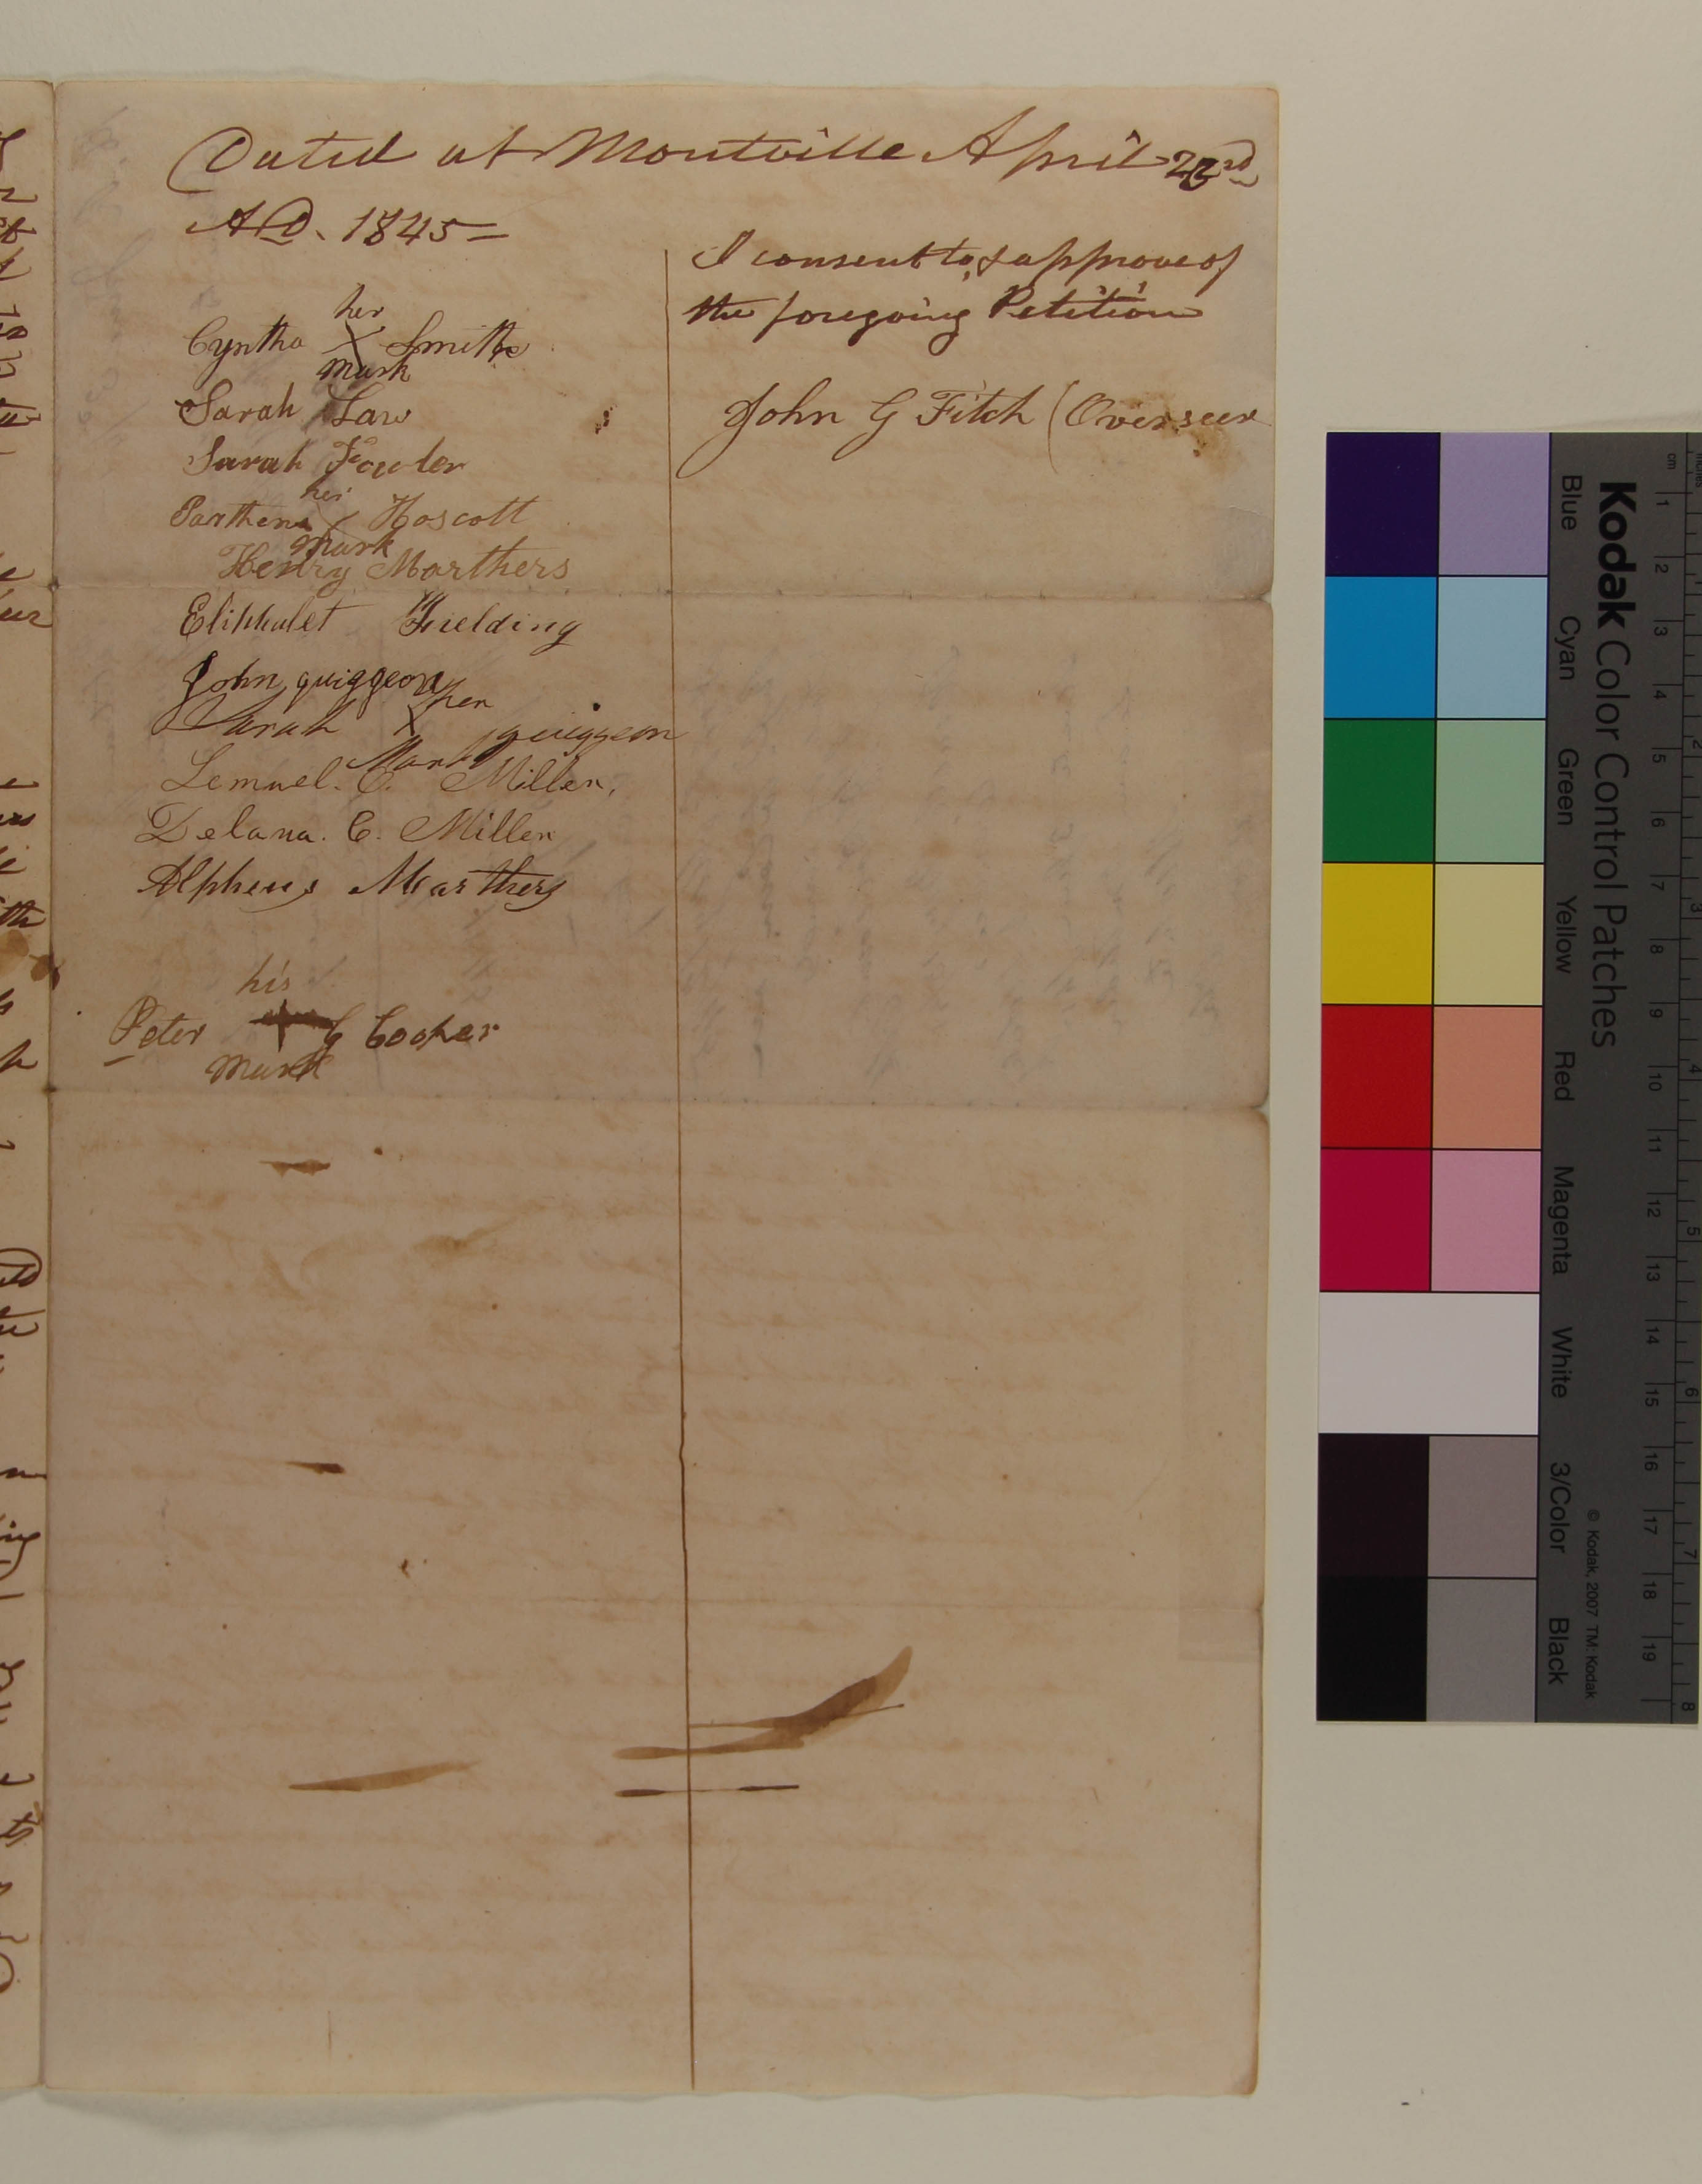 Dated at Montville April 23rd
A.D. 1845 =
her
Cyntha X Smith
mark
Sarah Law
Sarah Fowler
her
Parthena X Hoscott
mark
Henry Marthers
Eliphalet Fielding
John quiggeon
her
Sarah X quiggeon
Mark
Lemuel. C. Miller.
Delana. C. Miller
Alpheus Marthers
his
Peter + G Cooper
mark
I consent to, & approve of
the foregoing Petition
John G Fitch (Overseer
Kodak Color Control Patches
Blue Cyan Green Yellow Red Magenta White 3/Color Black
© Kodak, 2007 TM: Kodak
cm 1 2 3 4 5 6 7 8 9 10 11 12 13 14 15 16 17 18 19
inches 1 2 3 4 5 6 7 8